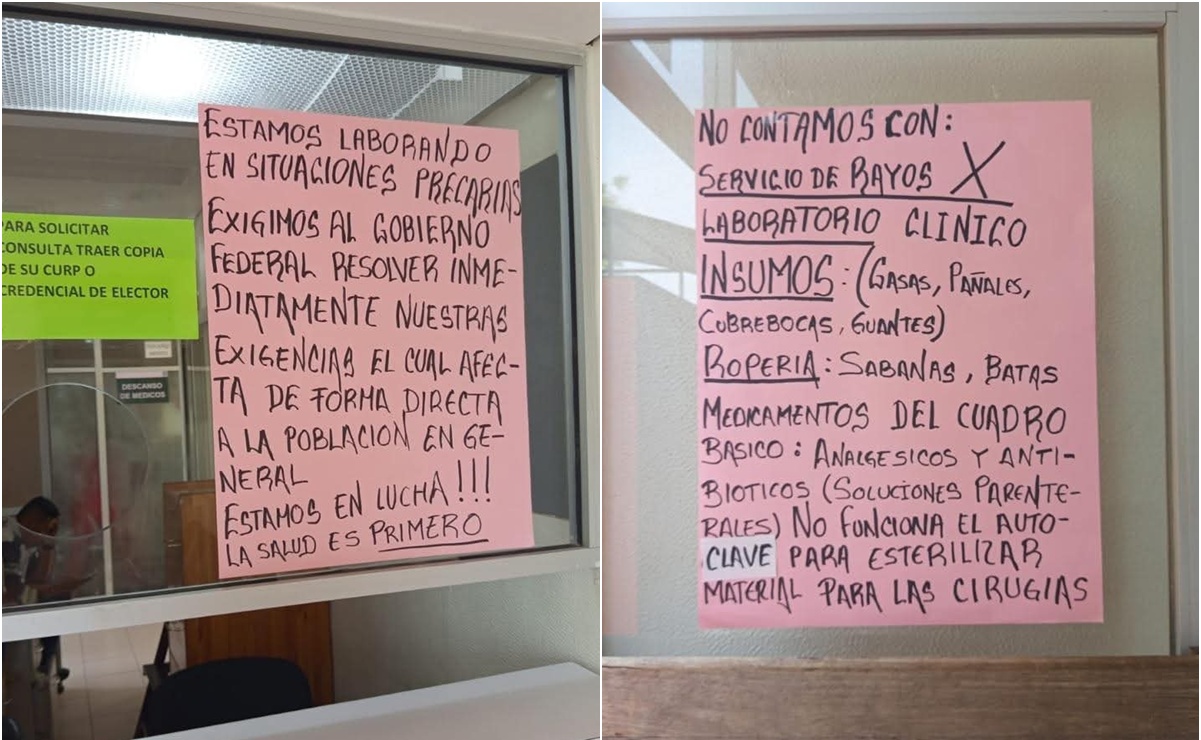 PARA SOLICITAR
CONSULTA TRAER COPIA
DE SU CURP O
CREDENCIAL DE ELECTOR
DESCANSO
DE MEDICOS
ESTAMOS LABORANDO
EN SITUACIONES PRECARIAS
EXIGIMOS AL GOBIERNO
FEDERAL RESOLVER INME-
DIATAMENTE NUESTRAS
EXIGENCIAS EL CUAL AFEC-
TA DE FORMA DIRECTA
A LA POBLACION EN GE-
NERAL
ESTAMOS EN LUCHA!!!
LA SALUD ES PRIMERO
NO CONTAMOS CON:
SERVICIO DE RAYOS X
LABORATORIO CLINICO
INSUMOS: (GASAS, PAÑALES,
CUBREBOCAS, GUANTES)
ROPERIA: SABANAS, BATAS
MEDICAMENTOS DEL CUADRO
BASICO: ANALGESICOS Y ANTI-
BIOTICOS (SOLUCIONES PARENTE-
RALES) NO FUNCIONA EL AUTO-
CLAVE PARA ESTERILIZAR
MATERIAL PARA LAS CIRUGIAS